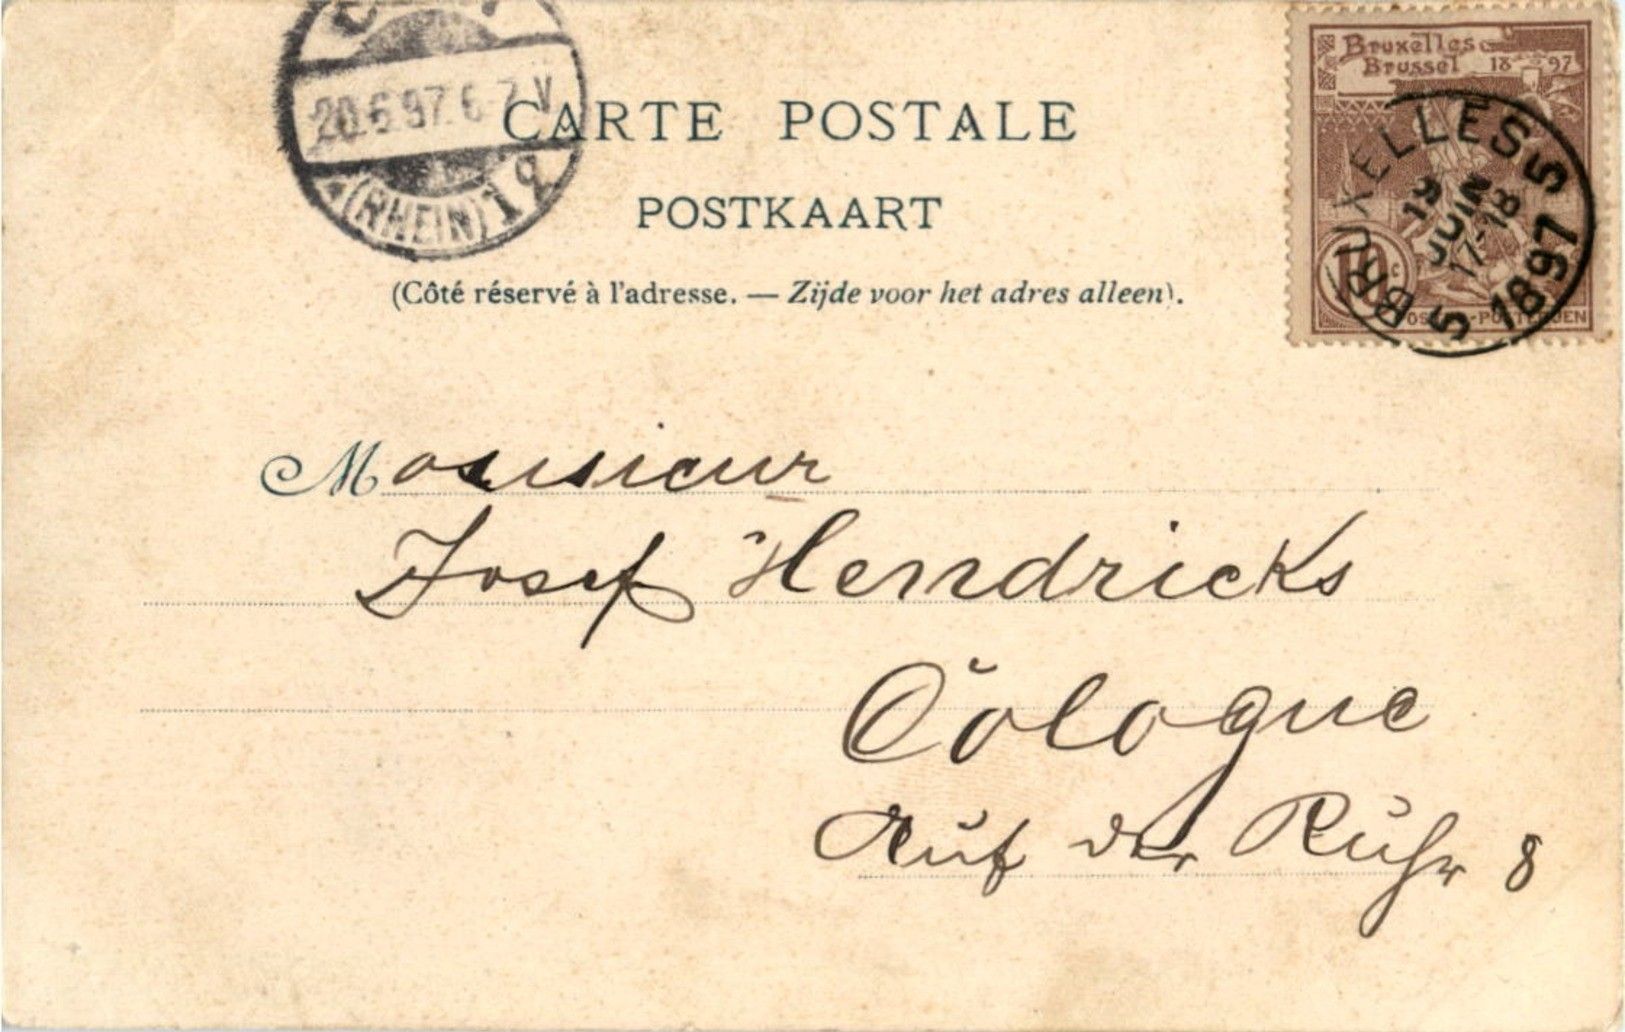 Bruxelles
Brussel 1897
20.6.97. 6-7 V
(RHEIN) 1 q
CARTE POSTALE
POSTKAART
(Côté réservé à l'adresse. — Zijde voor het adres alleen).
BRUXELLES 5
19
JUIN
17-18
1897
5
10 c
Monsieur
Josef Hendricks
Cologne
Auf der Ruhr 8